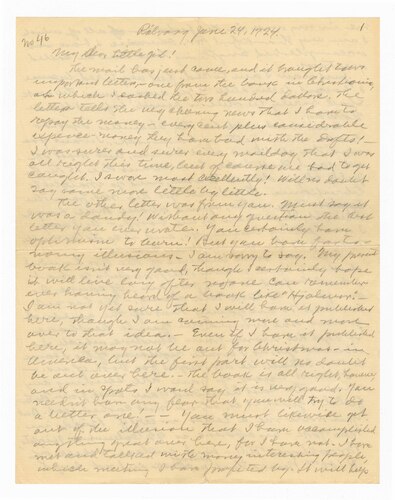 No 46
June 24, 1924.
1
My Dear Little girl!
The mail has just come, and it brought two
important letters, one from the bank in Christiania,
which I cashed the two hundred dollar. The
letter tells the very cheering news that I have to
repay the money - every cent plus considerable
expense money they have had with the
I was sure and swore every that I was
all right this time, but of course we had to get
caught. I swore most excellently! Will no doubt
say some more little by little.
The other letter was from you. Must say it
was a dandy! Without any question the best
letter you ever wrote. You certainly have
optimism to burn! But you have
many illusions - I am sorry to say. My present
book isn't very good, though I certainly hope
it will live long after anyone can remember
ever having heard of a book like
I am not yet sure that I will have it published
here, though I am coming more and more
over to that idea. - Even if I have it published
here, it may not be out for Christmas in
America, but the first part will no doubt
be out over here. - The book is all right, however,
and in spots, I want say, it is very good. You
needn't have any fear that you will try to do
a better one! - You must likewise get
out of the illusion that I have accomplished
anything great over here, for I have not. I have
met and talked with many interesting people,
which meeting I have profited by. It will help